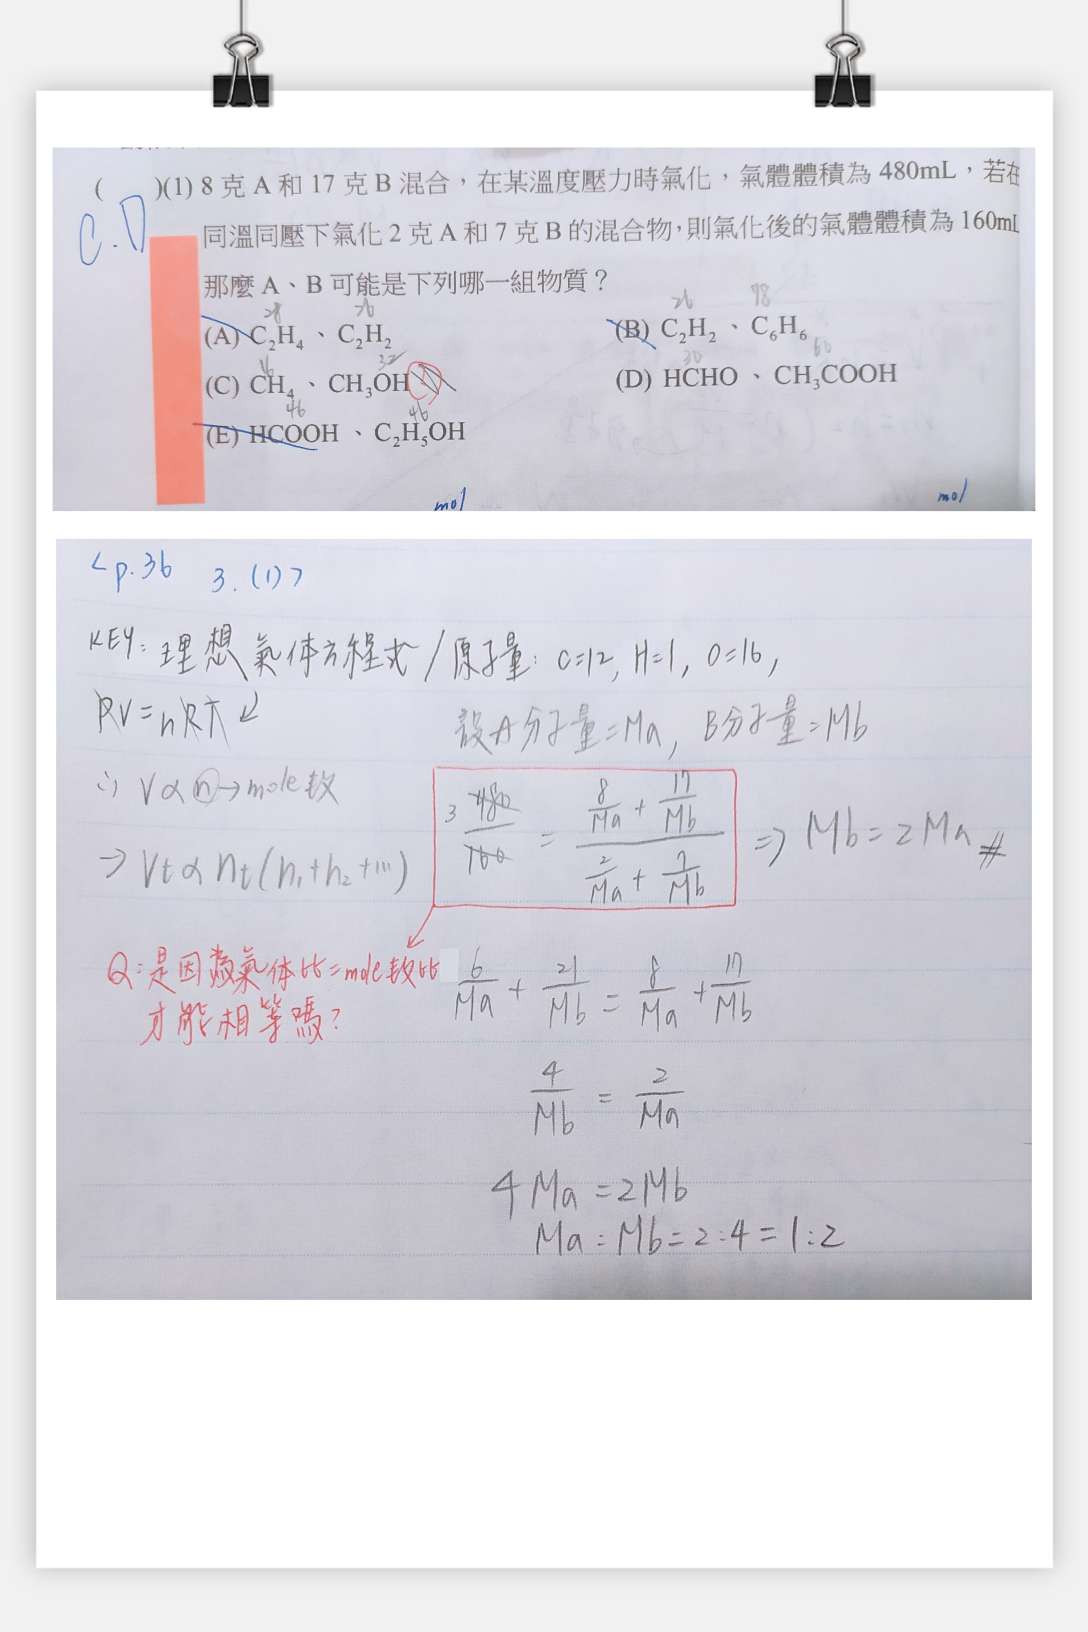 ( )(1) 8 克 A 和 17 克 B 混合，在某溫度壓力時氣化，氣體體積為 480mL，若在
C.D
同溫同壓下氣化 2 克 A 和 7 克 B 的混合物，則氣化後的氣體體積為 160mL
那麼 A、B 可能是下列哪一組物質？
28 26 26 78
(A) C₂H₄、C₂H₂ (B) C₂H₂、C₆H₆
16 32 30 60
(C) CH₄、CH₃OH (D) HCHO、CH₃COOH
46 46
(E) HCOOH、C₂H₅OH
mol mol
<p.36 3.(1)>
KEY: 理想氣体方程式/原子量: C=12, H=1, O=16,
PV=nRT
設A分子量=Ma, B分子量=Mb
∴ V∝n→mole數
3 480/160 = (8/Ma + 17/Mb)/(2/Ma + 7/Mb) ⇒ Mb=2Ma #
→ Vt∝nt(n₁+n₂+…)
Q:是因為氣体比=mole數比
才能相等嗎?
6/Ma + 21/Mb = 8/Ma + 17/Mb
4/Mb = 2/Ma
4Ma=2Mb
Ma:Mb=2:4=1:2